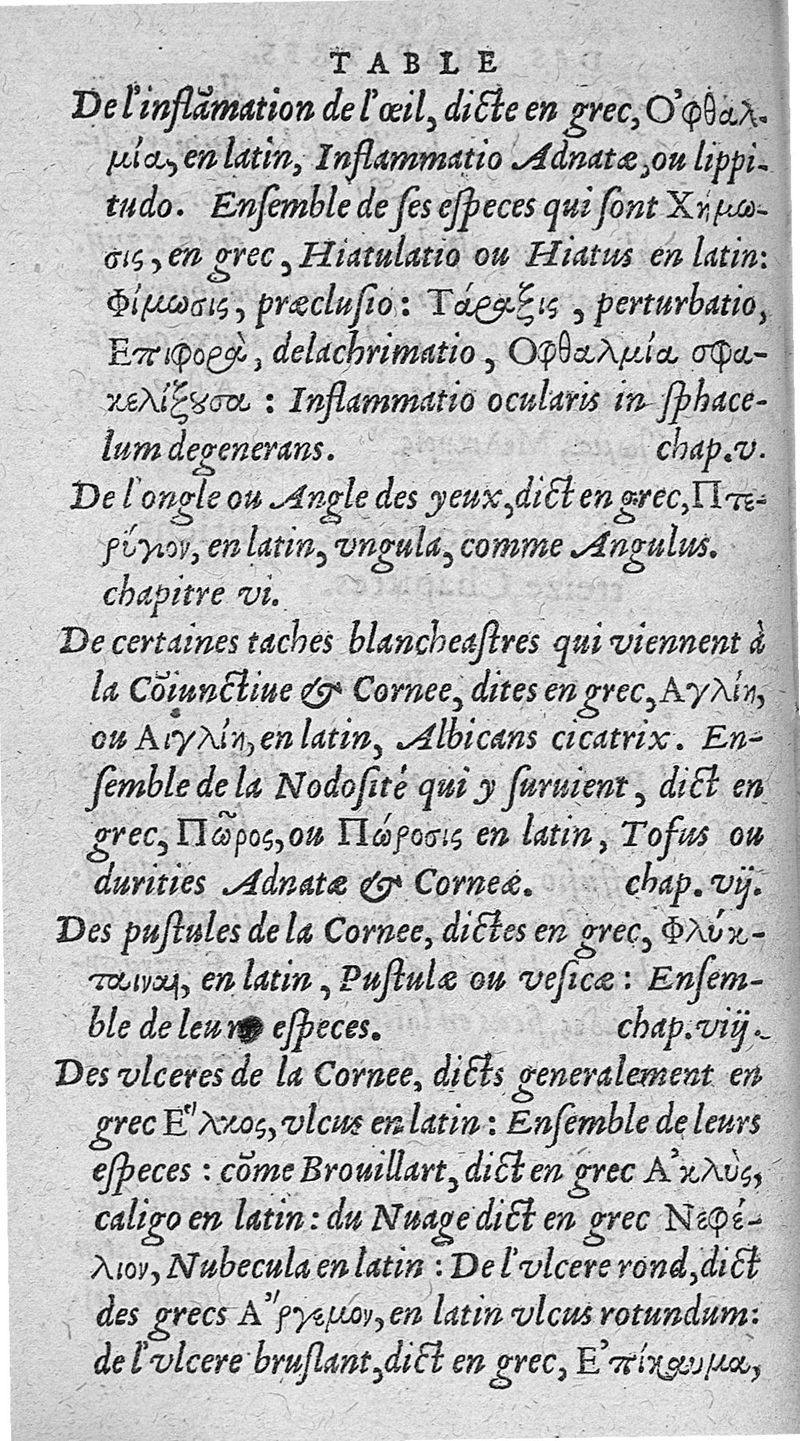 TABLE
De l'inflãmation de l'œil, dicte en grec, Ο’φθαλ-
μία, en latin, Inflammatio Adnatæ, ou lippi-
tudo. Enſemble de ſes eſpeces qui ſont Χήμω-
σις, en grec, Hiatulatio ou Hiatus en latin:
Φίμωσις, præcluſio: Τάραξις, perturbatio,
Επιφορὰ, delachrimatio, Οφθαλμία σφα-
κελίξουσα : Inflammatio ocularis in ſphace-
lum degenerans. chap.v.
De l'ongle ou Angle des yeux, dict en grec, Πτε-
ρύγιον, en latin, vngula, comme Angulus.
chapitre vi.
De certaines taches blancheaſtres qui viennent à
la Cõiunctiue & Cornee, dites en grec, Αγλίη,
ou Αιγλίη, en latin, Albicans cicatrix. En-
ſemble de la Nodoſité qui y ſuruient, dict en
grec, Πῶρος, ou Πώροσις en latin, Tofus ou
durities Adnatæ & Corneæ. chap. vij.
Des puſtules de la Cornee, dictes en grec, Φλύκ-
ταιναι, en latin, Puſtulæ ou veſicæ: Enſem-
ble de leurs eſpeces. chap.viij.
Des vlceres de la Cornee, dicts generalement en
grec Ε῞λκος, vlcus en latin: Enſemble de leurs
eſpeces : cõme Brouillart, dict en grec Α’κλὺς,
caligo en latin: du Nuage dict en grec Νεφέ-
λιον, Nubecula en latin : De l'vlcere rond, dict
des grecs Α῎ργεμον, en latin vlcus rotundum:
de l'vlcere bruſlant, dict en grec, Ε’πίκαυμα,